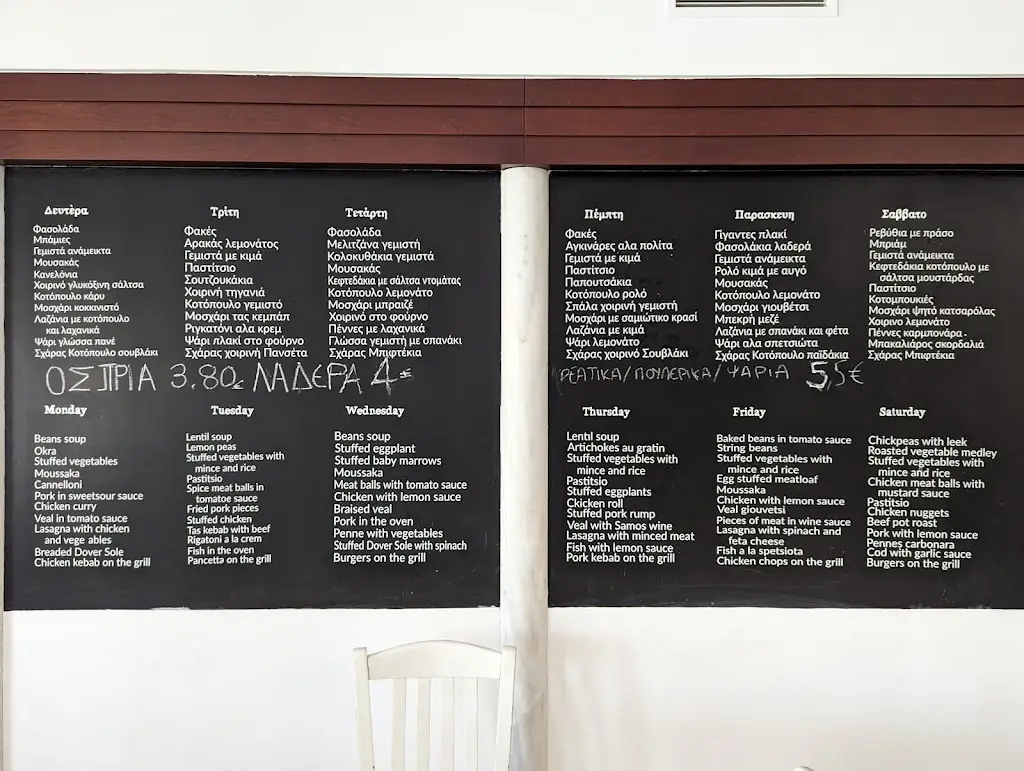 Δευτέρα
Φασολάδα
Μπάμιες
Γεμιστά ανάμεικτα
Μουσακάς
Κανελόνια
Χοιρινό γλυκόξινη σάλτσα
Κοτόπουλο κάρυ
Μοσχάρι κοκκινιστό
Λαζάνια με κοτόπουλο
και λαχανικά
Ψάρι γλώσσα πανέ
Σχάρας Κοτόπουλο σουβλάκι
Τρίτη
Φακές
Αρακάς λεμονάτος
Γεμιστά με κιμά
Παστίτσιο
Σουτζουκάκια
Χοιρινή τηγανιά
Κοτόπουλο γεμιστό
Μοσχάρι τας κεμπάπ
Ριγκατόνι αλα κρεμ
Ψάρι πλακί στο φούρνο
Σχάρας χοιρινή Πανσέτα
Τετάρτη
Φασολάδα
Μελιτζάνα γεμιστή
Κολοκυθάκια γεμιστά
Μουσακάς
Κεφτεδάκια με σάλτσα ντομάτας
Κοτόπουλο λεμονάτο
Μοσχάρι μπραιζέ
Χοιρινό στο φούρνο
Πέννες με λαχανικά
Γλώσσα γεμιστή με σπανάκι
Σχάρας Μπιφτέκια
ΟΣΠΡΙΑ 3.80€ ΛΑΔΕΡΑ 4€
Monday
Beans soup
Okra
Stuffed vegetables
Moussaka
Cannelloni
Pork in sweetsour sauce
Chicken curry
Veal in tomato sauce
Lasagna with chicken
and vege ables
Breaded Dover Sole
Chicken kebab on the grill
Tuesday
Lentil soup
Lemon peas
Stuffed vegetables with
mince and rice
Pastitsio
Spice meat balls in
tomatoe sauce
Fried pork pieces
Stuffed chicken
Tas kebab with beef
Rigatoni a la crem
Fish in the oven
Pancetta on the grill
Wednesday
Beans soup
Stuffed eggplant
Stuffed baby marrows
Moussaka
Meat balls with tomato sauce
Chicken with lemon sauce
Braised veal
Pork in the oven
Penne with vegetables
Stuffed Dover Sole with spinach
Burgers on the grill
Πέμπτη
Φακές
Αγκινάρες αλα πολίτα
Γεμιστά με κιμά
Παστίτσιο
Παπουτσάκια
Κοτόπουλο ρολό
Σπάλα χοιρινή γεμιστή
Μοσχάρι με σαμιώτικο κρασί
Λαζάνια με κιμά
Ψάρι λεμονάτο
Σχάρας χοιρινό Σουβλάκι
Παρασκευη
Γίγαντες πλακί
Φασολάκια λαδερά
Γεμιστά ανάμεικτα
Ρολό κιμά με αυγό
Μουσακάς
Κοτόπουλο λεμονάτο
Μοσχάρι γιουβέτσι
Μπεκρή μεζέ
Λαζάνια με σπανάκι και φέτα
Ψάρι αλα σπετσιώτα
Σχάρας Κοτόπουλο παϊδάκια
Σαββατο
Ρεβύθια με πράσο
Μπριάμ
Γεμιστά ανάμεικτα
Κεφτεδάκια κοτόπουλο με
σάλτσα μουστάρδας
Παστίτσιο
Κοτομπουκιές
Μοσχάρι ψητό κατσαρόλας
Χοιρινο λεμονάτο
Πέννες καρμπονάρα
Μπακαλιάρος σκορδαλιά
Σχάρας Μπιφτέκια
ΡΕΑΤΙΚΑ/ΠΟΥΛΕΡΙΚΑ/ΨΑΡΙΑ 5,5€
Thursday
Lentl soup
Artichokes au gratin
Stuffed vegetables with
mince and rice
Pastitsio
Stuffed eggplants
Ckicken roll
Stuffed pork rump
Veal with Samos wine
Lasagna with minced meat
Fish with lemon sauce
Pork kebab on the grill
Friday
Baked beans in tomato sauce
String beans
Stuffed vegetables with
mince and rice
Egg stuffed meatloaf
Moussaka
Chicken with lemon sauce
Veal giouvetsi
Pieces of meat in wine sauce
Lasagna with spinach and
feta cheese
Fish a la spetsiota
Chicken chops on the grill
Saturday
Chickpeas with leek
Roasted vegetable medley
Stuffed vegetables with
mince and rice
Chicken meat balls with
mustard sauce
Pastitsio
Chicken nuggets
Beef pot roast
Pork with lemon sauce
Pennes carbonara
Cod with garlic sauce
Burgers on the grill